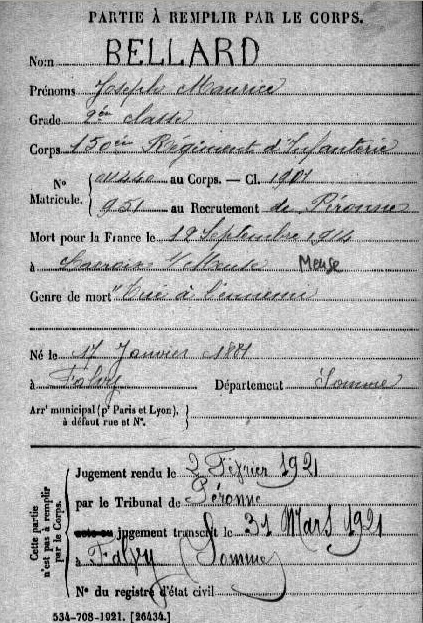 PARTIE À REMPLIR PAR LE CORPS.
Nom BELLARD
Prénoms Joseph Maurice
Grade 2ème classe
Corps 150ème Régiment d'Infanterie
N° Matricule. au Corps. — Cl. 1907
951 au Recrutement de Péronne
Mort pour la France le 12 Septembre 1914
à Lacroix s/Meuse Meuse
Genre de mort "Tué à l'ennemi
Né le 17 Janvier
à Falvy Département Somme
Arrt municipal (pr Paris et Lyon), à défaut rue et N°.
Cette partie n'est pas à remplir par le Corps.
Jugement rendu le 2 Février 1921
par le Tribunal de Péronne
acte ou jugement transcrit le 31 Mars 1921
à Falvy (Somme)
N° du registre d'état civil
534-708-1921. [26434.]